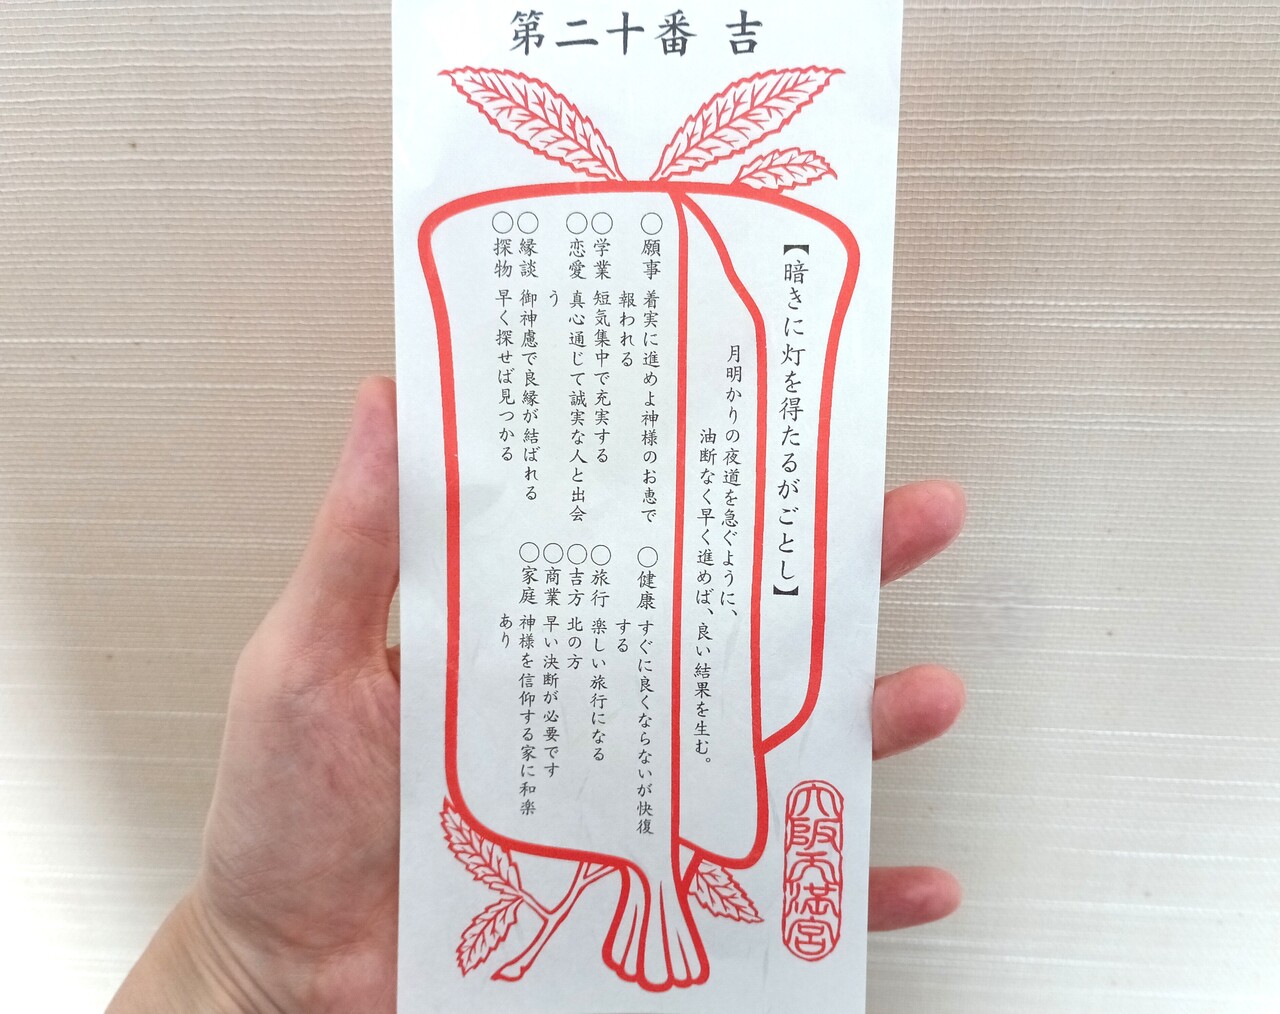 第二十番 吉
【暗きに灯を得たるがごとし】
月明かりの夜道を急ぐように、
油断なく早く進めば、良い結果を生む。
○願事 着実に進めよ神様のお恵で
報われる
○学業 短気集中で充実する
○恋愛 真心通じて誠実な人と出会
う
○縁談 御神慮で良縁が結ばれる
○探物 早く探せば見つかる
○健康 すぐに良くならないが快復
する
○旅行 楽しい旅行になる
○吉方 北の方
○商業 早い決断が必要です
○家庭 神様を信仰する家に和楽
あり
大阪天満宮